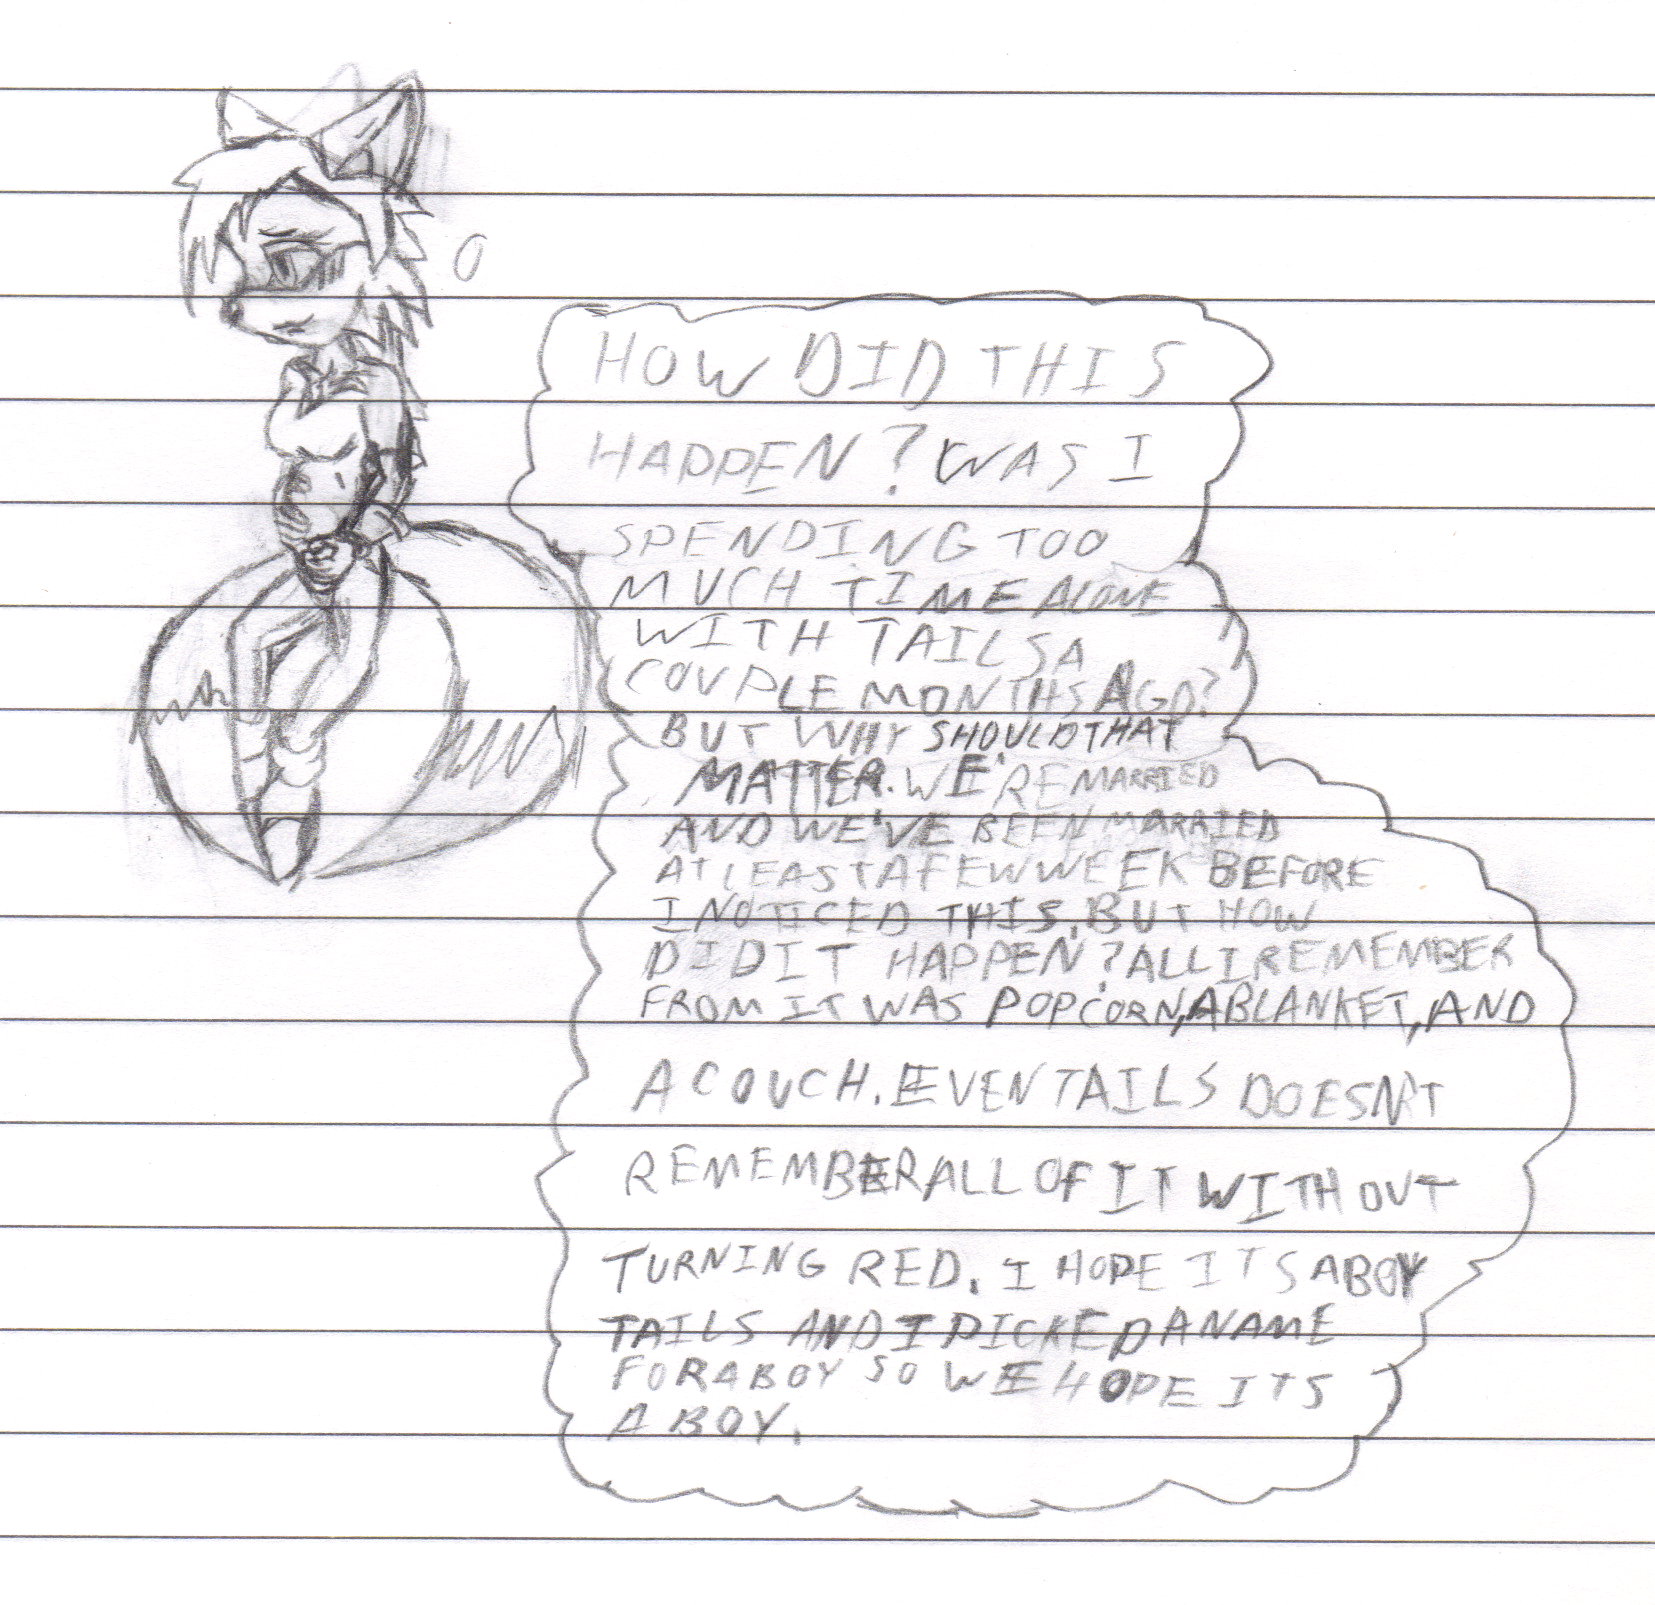 HOW DID THIS
HAPPEN? WAS I
SPENDING TOO
MUCH TIME ALONE
WITH TAILS A
COUPLE MONTHS AGO?
BUT WHY SHOULD THAT
MATTER. WE'RE MARRIED
AND WE'VE BEEN MARRIED
AT LEAST A FEW WEEK BEFORE
I NOTICED THIS. BUT HOW
DID IT HAPPEN? ALL I REMEMBER
FROM IT WAS POPCORN, A BLANKET, AND
A COUCH. EVEN TAILS DOESN'T
REMEMBER ALL OF IT WITHOUT
TURNING RED. I HOPE ITS A BOY
TAILS AND I PICKED A NAME
FOR A BOY SO WE HOPE ITS
A BOY.